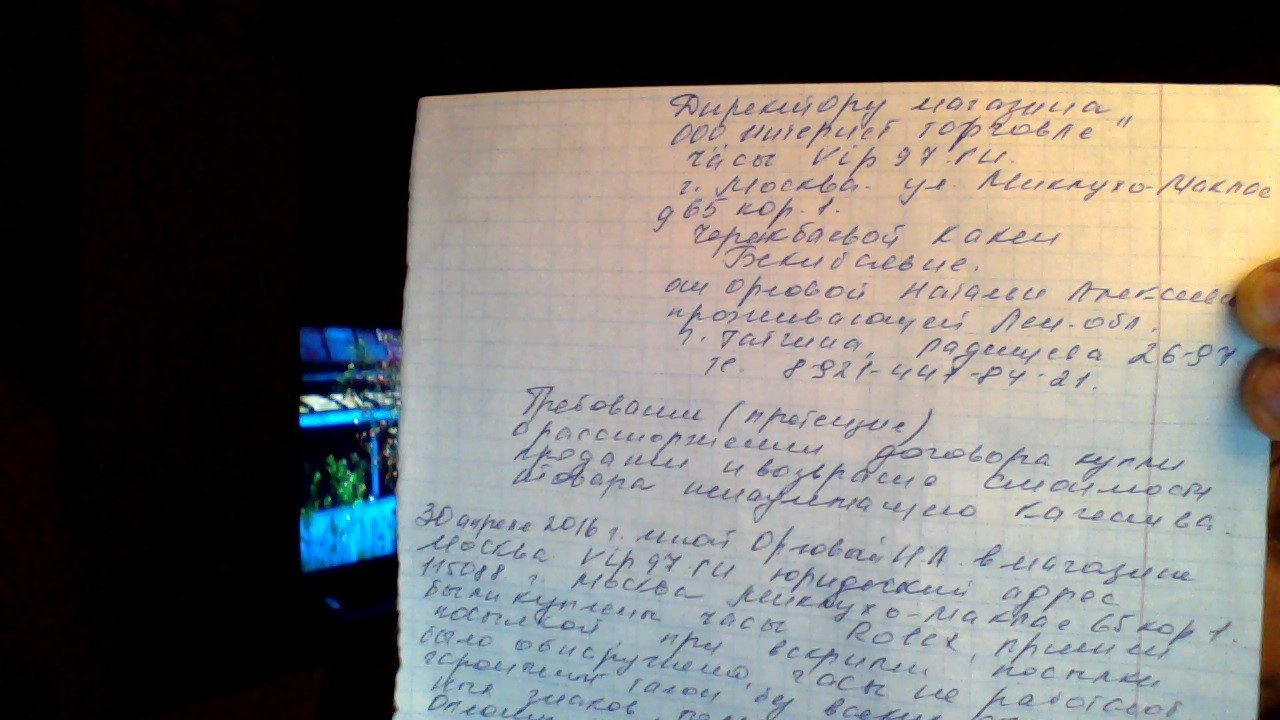 Директору магазина
ООО интернет торговле"
часы Vip 97.ru.
г. Москва. ул. Миклухо-Маклае
д 65 кор. 1.
от Орловой Натальи Алексеевн
проживающей Лен. обл.
г. Гатчина, Радищева 26-97
те. 8 921-441-84-21.
Требовании (претензие)
о расторжении договора купли
продажи и возврата стоимости
товара ненадлежащего качества.
30 апреля 2016 г. мной Орловой Н.А. в магазине
Москва Vip 97.ru юридеский адрес
115088 г. Москва Меиклухо-Маклае 65 кор 1.
были куплены часы Rolex, пришли
посылкой, при вскрытии посылки
было обнаружено, часы не работают
гаронтий талон, бу всеких
ных знаков,